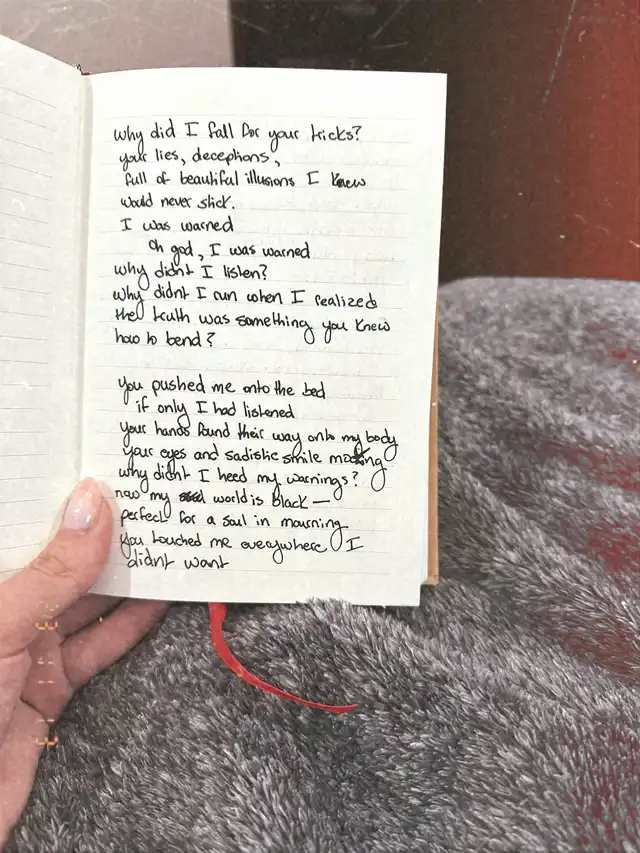 why did I fall for your tricks?
your lies, deceptions,
full of beautiful illusions I knew
would never stick.
I was warned
Oh god, I was warned
why didnt I listen?
why didnt I run when I realized
the truth was something you knew
how to bend?
you pushed me onto the bed
if only I had listened
your hands found their way onto my body
your eyes and sadistic smile mocking
why didnt I heed my warnings?
now my world is black—
perfect for a soul in mourning
You touched me everywhere I
didnt want